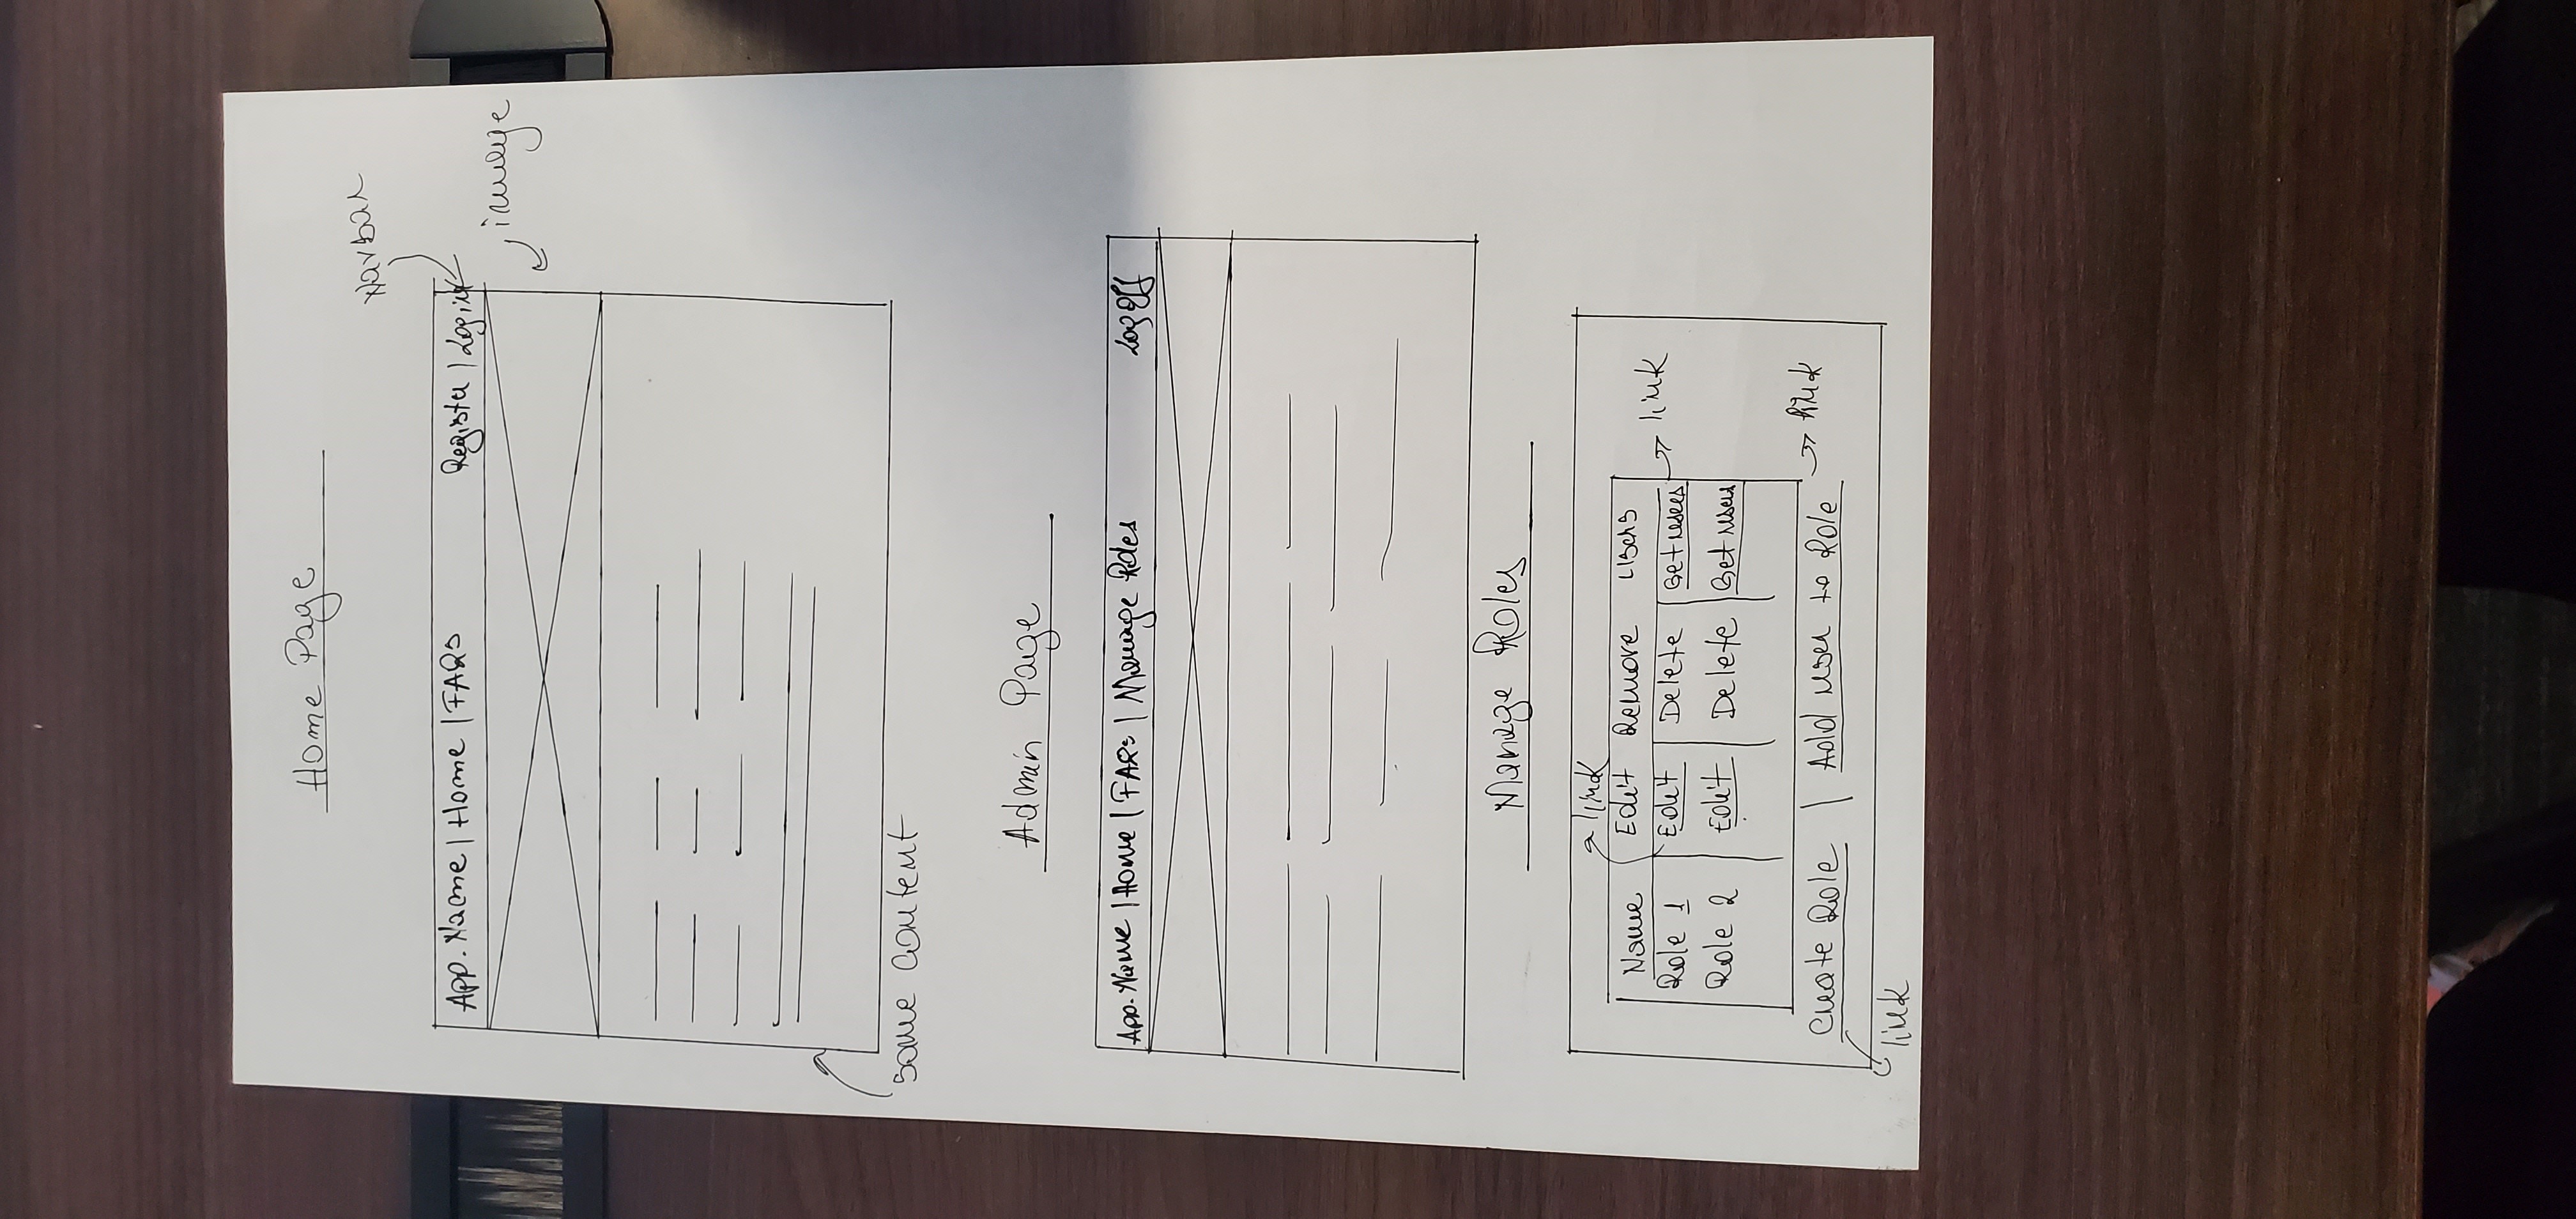 Home Page
Navbar
App. Name | Home | FAQs Register | Login
image
Some Content
Admin Page
App. Name | Home | FAQs | Manage Roles Log Off
Manage Roles
link
Name Edit Remove Users
Role 1 Edit Delete Get users link
Role 2 Edit Delete Get users
Create Role | Add user to Role link
link